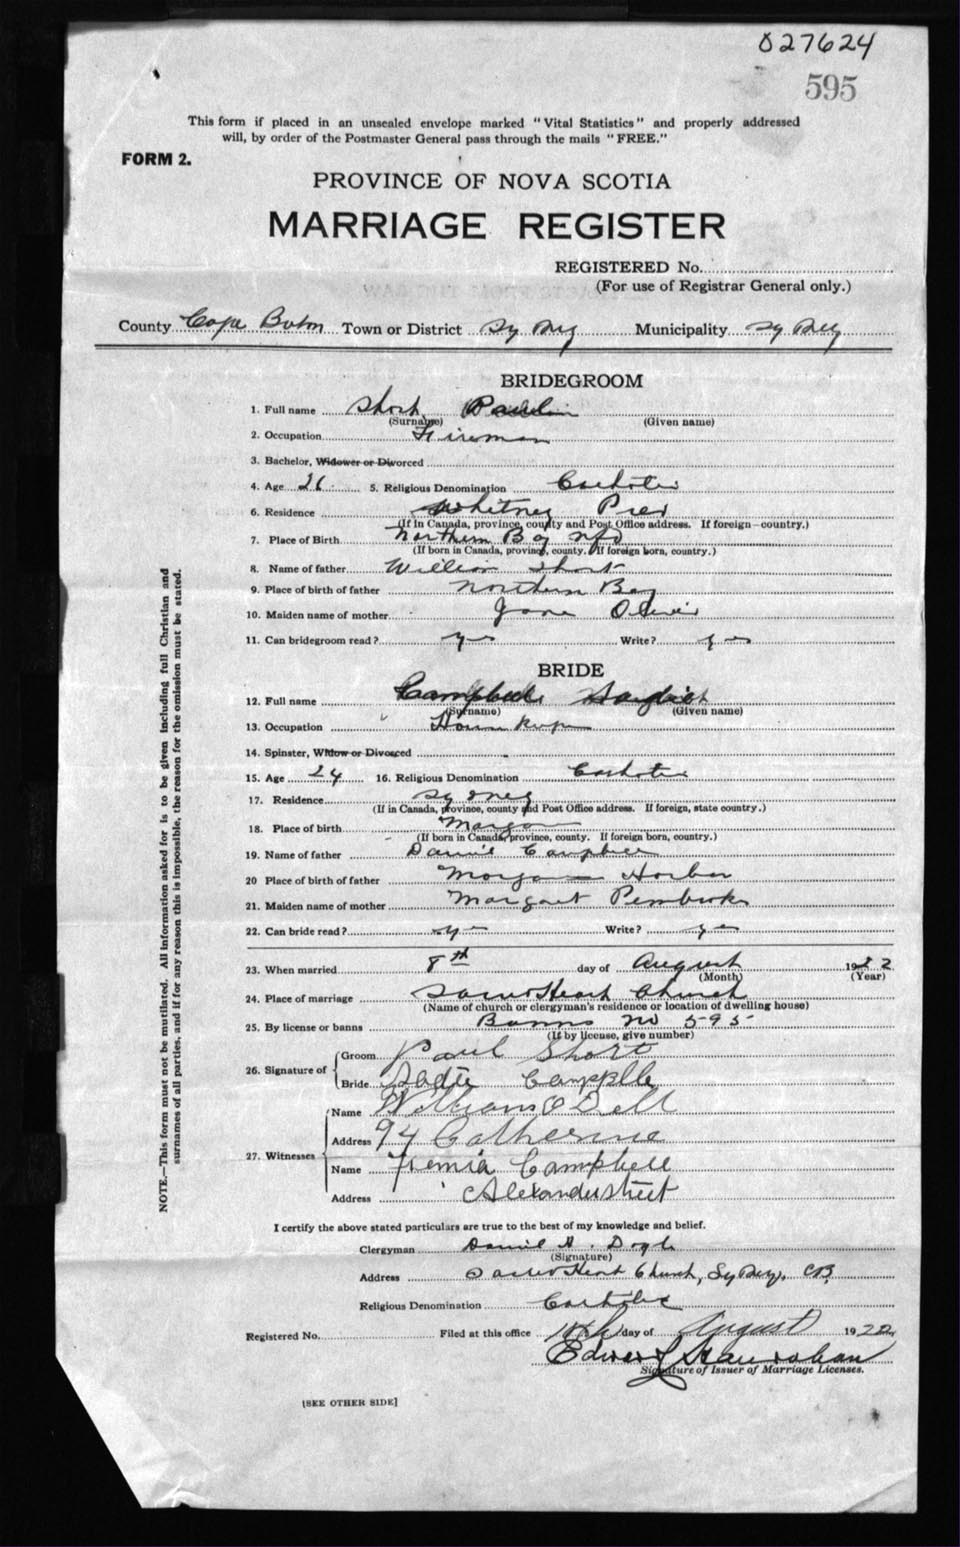 027624
595
This form if placed in an unsealed envelope marked "Vital Statistics" and properly addressed
will, by order of the Postmaster General pass through the mails "FREE."
FORM 2.
PROVINCE OF NOVA SCOTIA
MARRIAGE REGISTER
REGISTERED No.
(For use of Registrar General only.)
County Cape Breton Town or District Sydney Municipality Sydney
BRIDEGROOM
1. Full name Short Paul
(Surname) (Given name)
2. Occupation Fireman
3. Bachelor, Widower or Divorced
4. Age 26 5. Religious Denomination Catholic
6. Residence Whitney Pier
(If in Canada, province, county and Post Office address. If foreign—country.)
7. Place of Birth Northern Bay Nfd
(If born in Canada, province, county. If foreign born, country.)
8. Name of father William Short
9. Place of birth of father Northern Bay
10. Maiden name of mother Jane Oliver
11. Can bridegroom read? yes Write? yes
BRIDE
12. Full name Campbell
(Surname) (Given name)
13. Occupation House keeper
14. Spinster, Widow or Divorced
15. Age 24 16. Religious Denomination Catholic
17. Residence Sydney
(If in Canada, province, county and Post Office address. If foreign, state country.)
18. Place of birth
(If born in Canada, province, county. If foreign born, country.)
19. Name of father Daniel Campbell
20 Place of birth of father Harbor
21. Maiden name of mother Margaret Pembroke
22. Can bride read? yes Write? yes
23. When married 8th day of August 1922
(Month) (Year)
24. Place of marriage Sacred Heart Church
(Name of church or clergyman's residence or location of dwelling house)
25. By license or banns Banns No 595
(If by license, give number)
26. Signature of
Groom Paul Short
Bride Sadie Campplle
27. Witnesses
Name William O Dell
Address 94 Catherine
Name Fiemia Campbell
Address Alexander street
I certify the above stated particulars are true to the best of my knowledge and belief.
Clergyman Daniel A. Doyle
(Signature)
Address Sacred Heart Church, Sydney, CB.
Religious Denomination Catholic
Registered No. Filed at this office day of August 1922
Signature of Issuer of Marriage Licenses.
[SEE OTHER SIDE]
NOTE.—This form must not be mutilated. All information asked for is to be given including full Christian and
surnames of all parties, and if for any reason this is impossible, the reason for the omission must be stated.